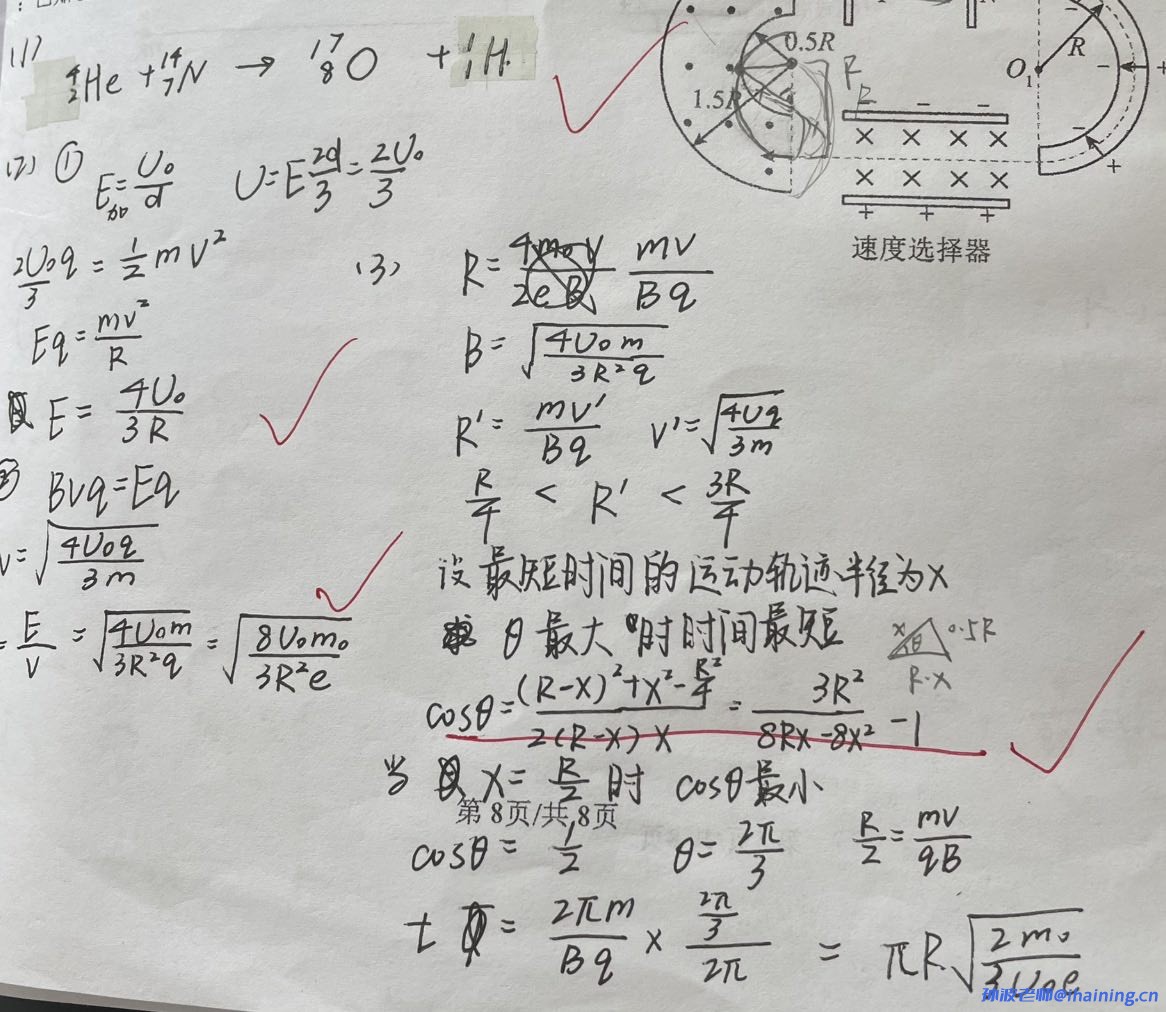 (1) ⁴₂He + ¹⁴₇N → ¹⁷₈O + ¹₁H
0.5R
1.5R
O₁ R
速度选择器
(2) ① E = U₀/d U = E 2d/3 = 2U₀/3
2U₀/3 q = 1/2 mv²
Eq = mv²/R
E = 4U₀/3R
BVq = Eq
V = √(4U₀q/3m)
= E/V = √(4U₀m/3R²q) = √(8U₀m₀/3R²e)
(3) R = mv/Bq
B = √(4U₀m/3R²q)
R' = mv'/Bq v' = √(4Uq/3m)
R/4 < R' < 3R/4
设最短时间的运动轨迹半径为x
θ最大时时间最短
x θ 0.5R R-x
cosθ = ((R-x)² + x² - R²/4)/(2(R-x)x) = 3R²/(8Rx-8x²) - 1
当 x = R/2 时 cosθ最小
第 8页/共 8页
cosθ = 1/2 θ = 2π/3 R/2 = mv/qB
t = 2πm/Bq × (2π/3)/2π = πR√(2m₀/3U₀e)
孙波老师@inaining.cn